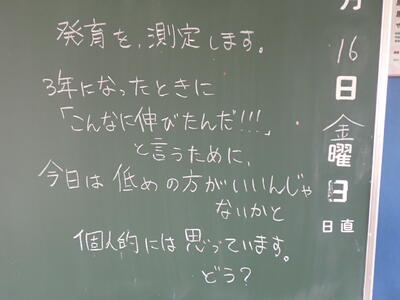 発育を、測定します。
3年になったときに
「こんなに伸びたんだ!!!」
と言うために、
今日は低めの方がいいんじゃ
ないかと
個人的には思っています。
どう?
月
16
日
金
曜
日
日直